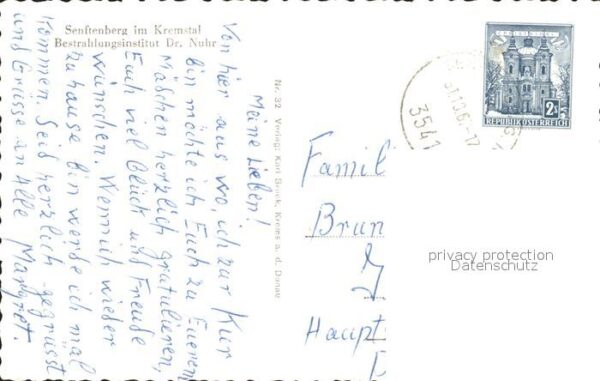 Senftenberg im Kremstal
Bestrahlungsinstitut Dr. Nuhr
Meine Lieben!
Von hier aus, wo ich zur Kur
bin möchte ich Euch zu Euerem
Mäschen herzlich gratulieren,
Euch viel Glück und Freude
wünschen. Wenn ich wieder
zuhause bin werde ich mal
kommen. Seid herzlich gegrüsst
und Grüsse an Alle Margret.
Nr. 32 Verlag: Karl Brack, Krems a. d. Donau
CHRISTKINDL
2 S
REPUBLIK ÖSTERREICH
3541
Famil
Brun
privacy protection
Datenschutz
Haupt